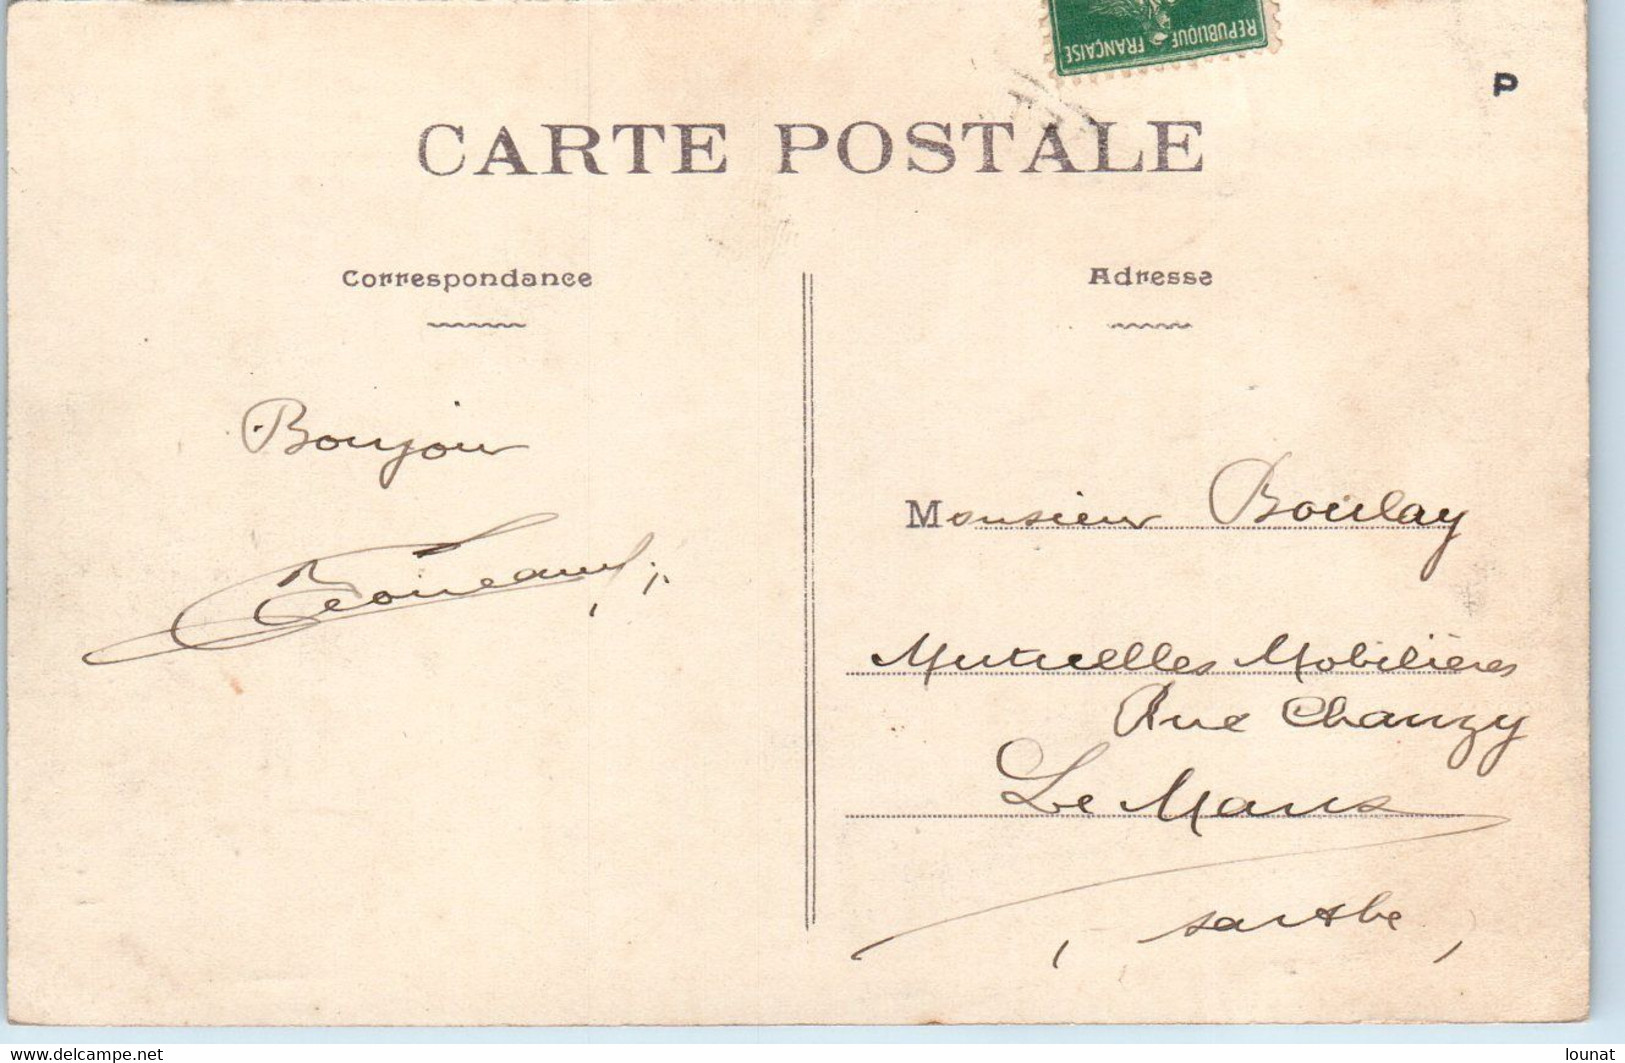 REPUBLIQUE FRANÇAISE
P
CARTE POSTALE
Correspondance
Adresse
Bonjour
Monsieur Boulay
Mutuelles Mobilières
Rue Chanzy
Le Mans
(Sarthe)
www.delcampe.net
lounat